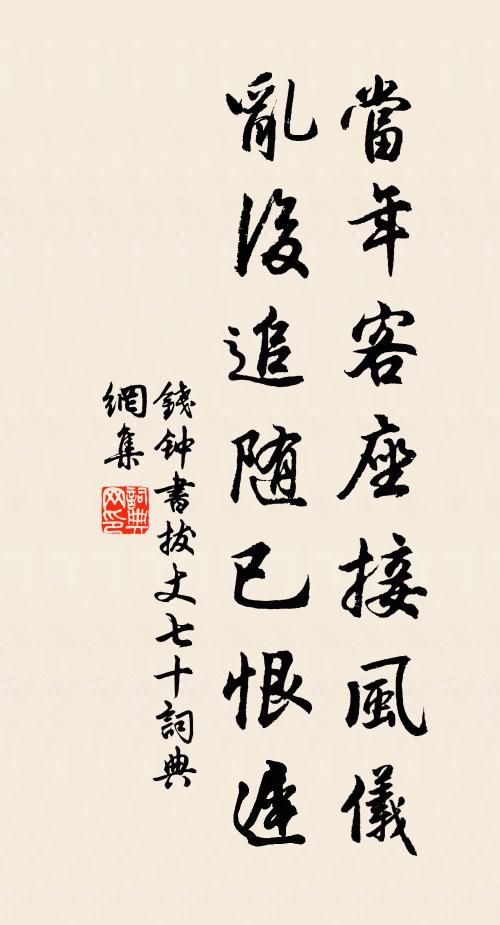 當年客座接風儀
亂後追隨已恨遲
錢钟書拔丈七十詞典
網集
詞典網印